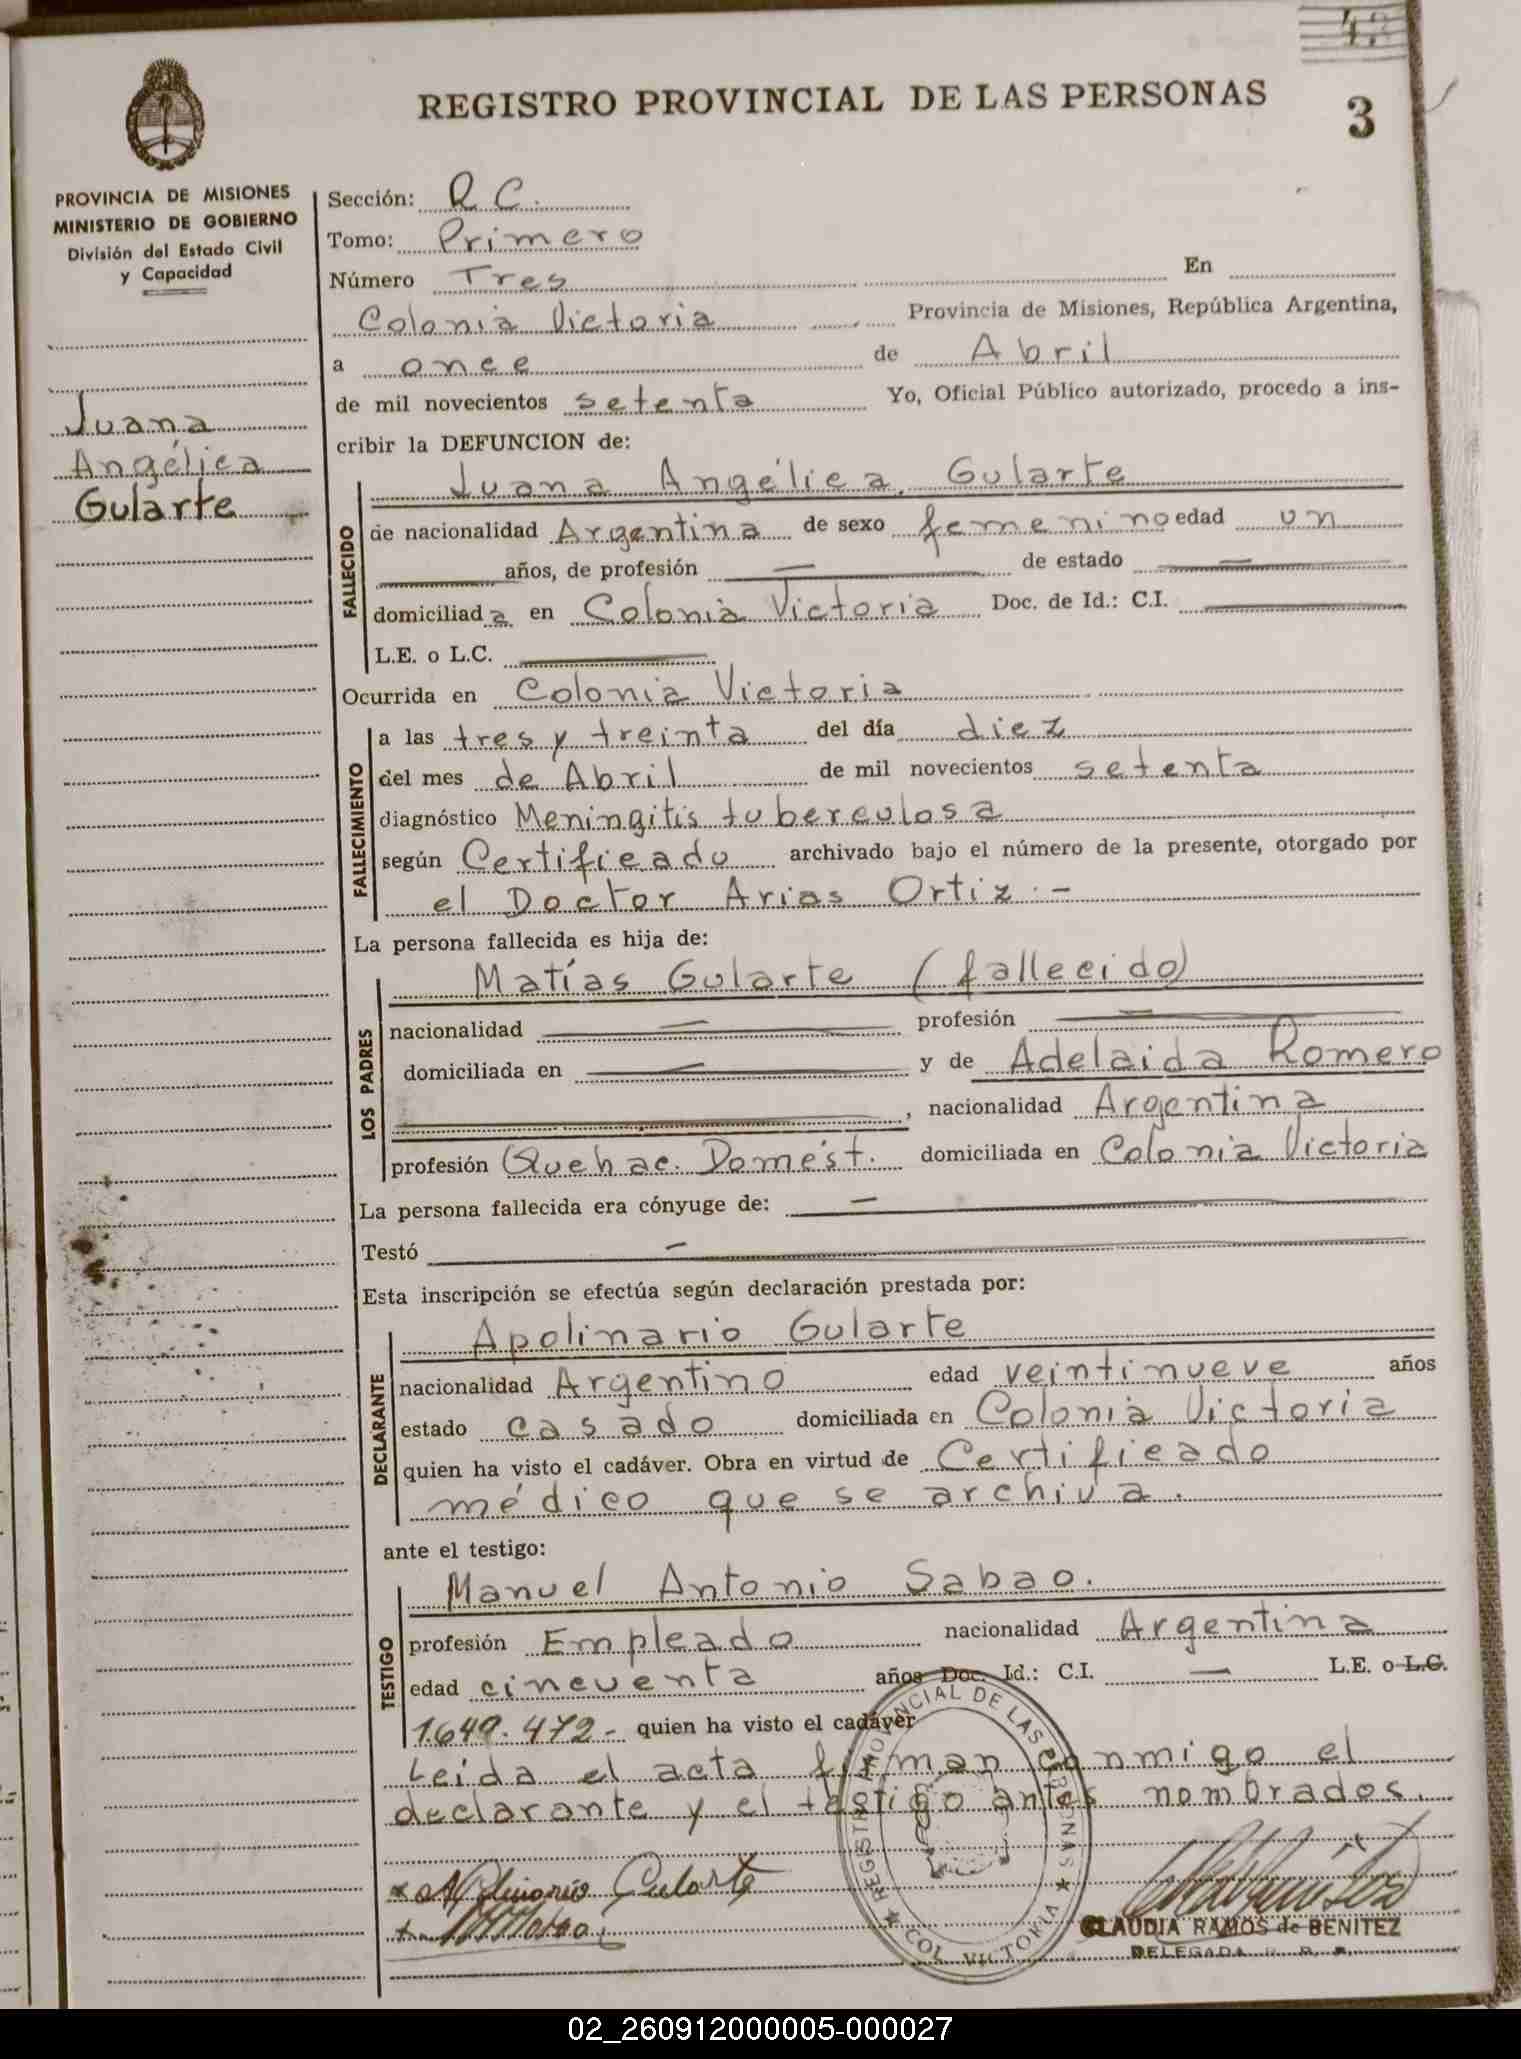 REGISTRO PROVINCIAL DE LAS PERSONAS
3
PROVINCIA DE MISIONES
MINISTERIO DE GOBIERNO
División del Estado Civil
y Capacidad
Juana
Angélica
Gularte
Sección: R C.
Tomo: Primero
Número Tres En
Colonia Victoria Provincia de Misiones, República Argentina,
a once de Abril
de mil novecientos setenta Yo, Oficial Público autorizado, procedo a ins-
cribir la DEFUNCION de:
Juana Angélica Gularte
FALLECIDO
de nacionalidad Argentina de sexo femenino edad un
años, de profesión — de estado —
domiciliada en Colonia Victoria Doc. de Id.: C.I.
L.E. o L.C.
Ocurrida en Colonia Victoria
FALLECIMIENTO
a las tres y treinta del día diez
del mes de Abril de mil novecientos setenta
diagnóstico Meningitis tuberculosa
según Certificado archivado bajo el número de la presente, otorgado por
el Doctor Arias Ortiz.-
La persona fallecida es hija de:
Matías Gularte (fallecido)
LOS PADRES
nacionalidad — profesión —
domiciliada en — y de Adelaida Romero
, nacionalidad Argentina
profesión Quehac. Domést. domiciliada en Colonia Victoria
La persona fallecida era cónyuge de: —
Testó —
Esta inscripción se efectúa según declaración prestada por:
Apolinario Gularte
DECLARANTE
nacionalidad Argentino edad veintinueve años
estado casado domiciliada en Colonia Victoria
quien ha visto el cadáver. Obra en virtud de Certificado
médico que se archiva.
ante el testigo:
Manuel Antonio Sabao.
TESTIGO
profesión Empleado nacionalidad Argentina
edad cincuenta años Doc. Id.: C.I. — L.E. o L.C.
1.649.472- quien ha visto el cadáver
Leída el acta firman conmigo el
declarante y el testigo antes nombrados.
REGISTRO PROVINCIAL DE LAS PERSONAS ★ COL. VICTORIA ★
Apolinario Gularte
CLAUDIA RAMOS de BENITEZ
DELEGADA
02_260912000005-000027